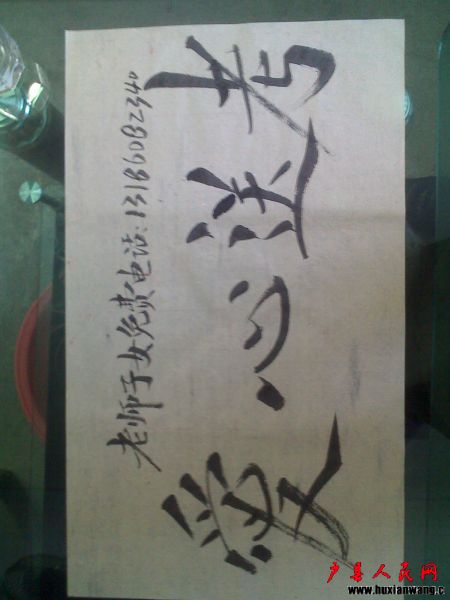 爱心送考
老师子女免费电话:13186082340
户县人民网
www.huxianwang.c